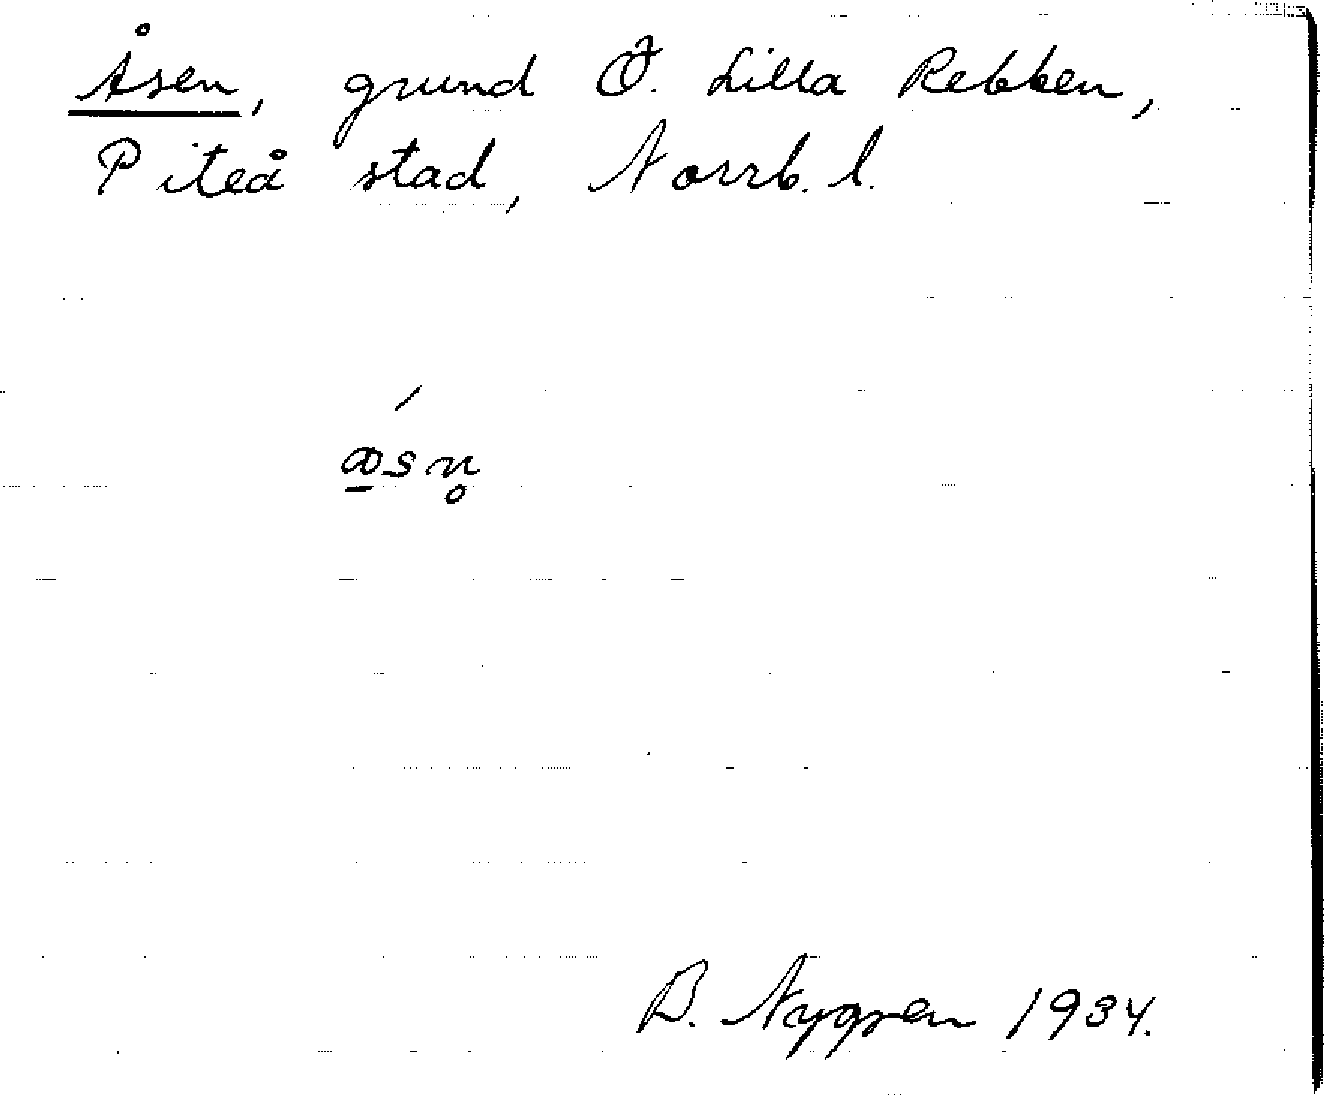 Åsen, grund Ö. Lilla Rebben,
Piteå stad, Norrb. l.
B. Nygren 1934.